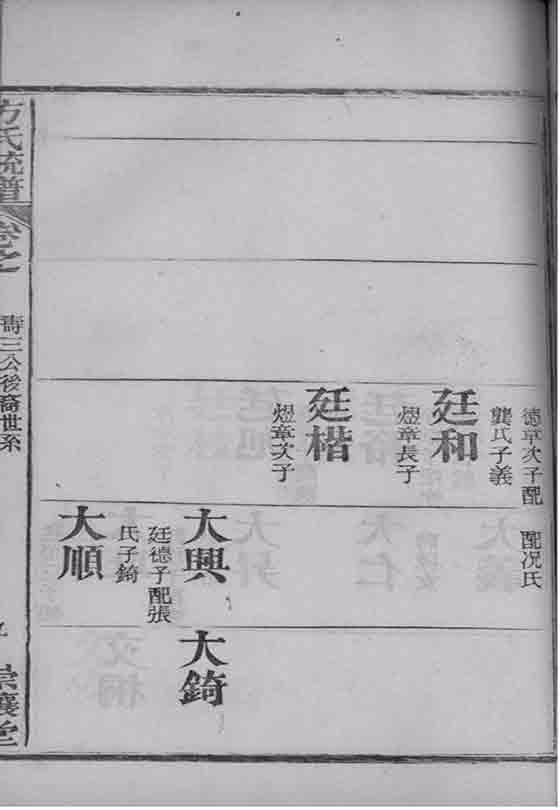 德章次子配
龔氏子義
廷和
煜章長子
廷楷
煜章次子
配况氏
大興
廷德子配張
氏子錡
大順
大錡
方氏統譜
卷之
壽三公後裔世系
九
崇讓堂